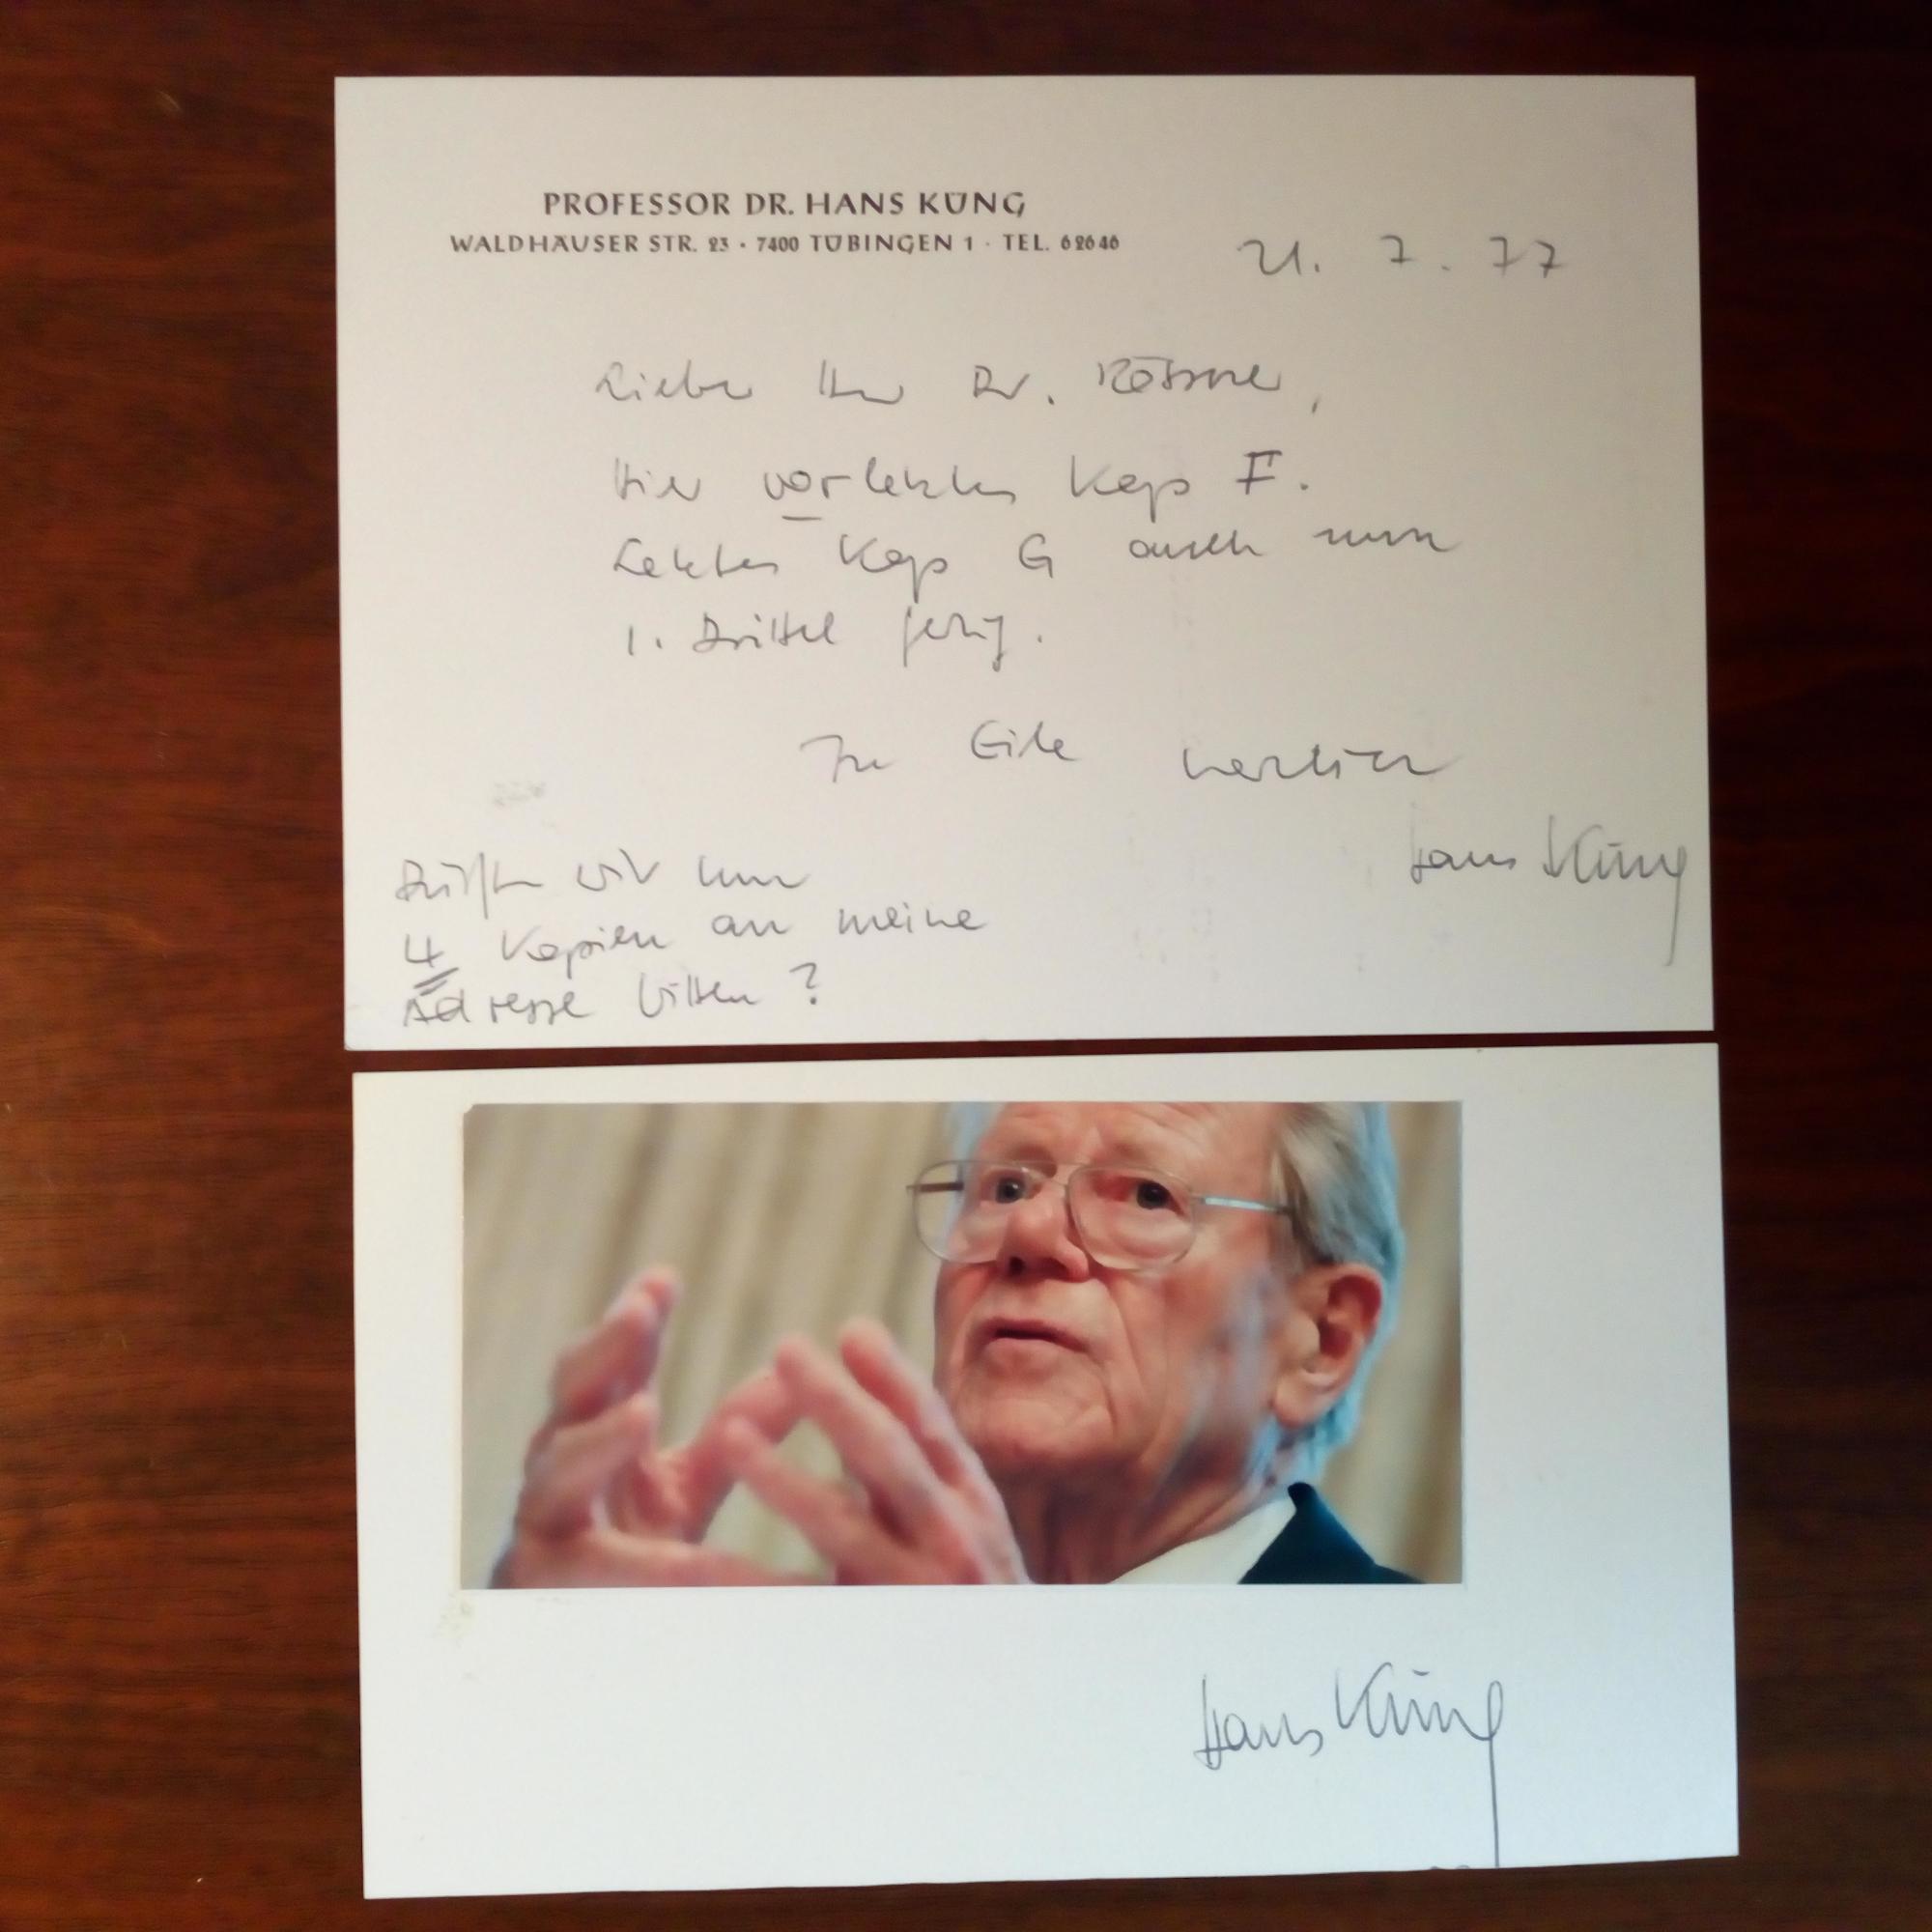 PROFESSOR DR. HANS KÜNG
WALDHÄUSER STR. 23 · 7400 TÜBINGEN 1 · TEL. 62646
21. 7. 77
Lieber Herr Dr. Rössner,
Hier vorletztes Kap F.
Letztes Kap G auch nun
1. Drittel fertig.
In Eile herzlich
Hans Küng
Dürfen wir um
4 Kopien an meine
Adresse bitten?
Hans Küng